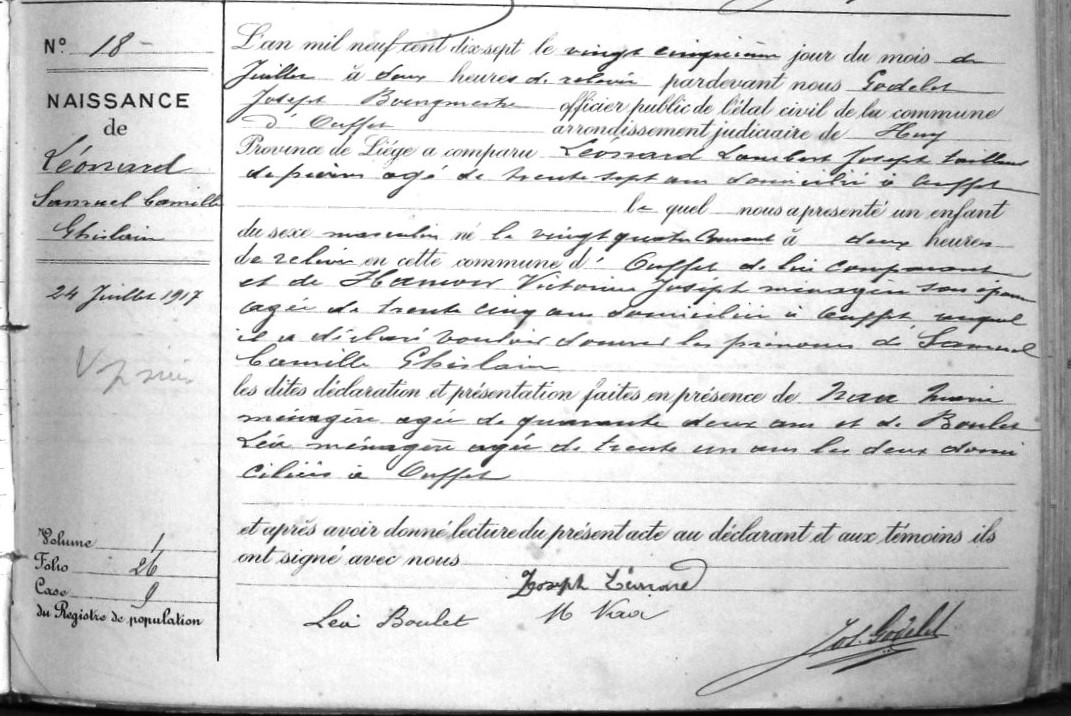 N° 18 -
NAISSANCE
de
Léonard
Samuel Camille
Ghislain
24 Juillet 1917
Volume 1
Folio 26
Case 9
du Registre de population
L'an mil neuf cent dix-sept le vingt cinquième jour du mois de
Juillet à deux heures de relevée pardevant nous Godelet
Joseph Bourgmestre officier public de l'état civil de la commune
d'Ouffet arrondissement judiciaire de Huy
Province de Liége a comparu Léonard Lambert Joseph tailleur
de pierres agé de trente sept ans domicilié à Ouffet
le quel nous a presenté un enfant
du sexe masculin né le vingt quatre Courant à deux heures
de relevée en cette commune d'Ouffet de lui comparant
et de Hamoir Victorine Joseph ménagère son épouse
agée de trente cinq ans domiciliée à Ouffet auquel
il a déclaré vouloir donner les prénoms de Samuel
Camille Ghislain
les dites déclaration et présentation faites en présence de Marie
ménagère agée de quarante deux ans et de Boulet
Léa ménagère agée de trente un ans les deux domi
ciliées à Ouffet
et après avoir donné lecture du présent acte au déclarant et aux témoins ils
ont signé avec nous
Joseph Léonard
Léa Boulet M
Jos. Godelet